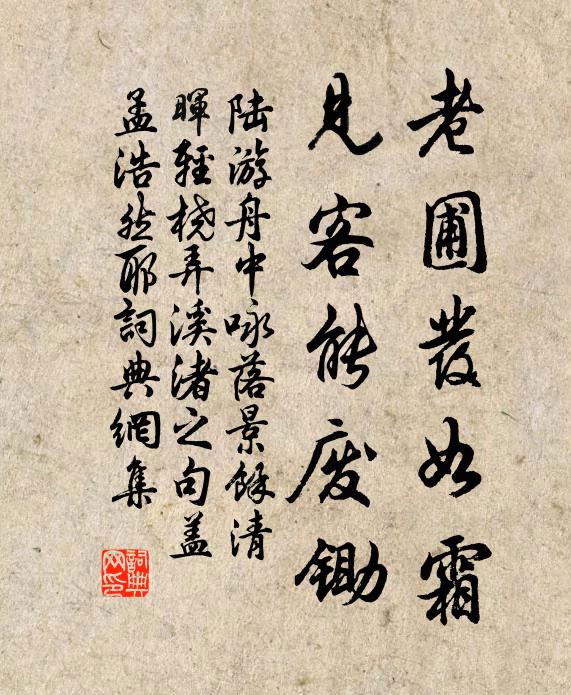 老圃发如霜
见客能废锄
陆游舟中咏落景馀清
晖轻桡弄溪渚之句盖
孟浩然耶词典网集
詞典
网印